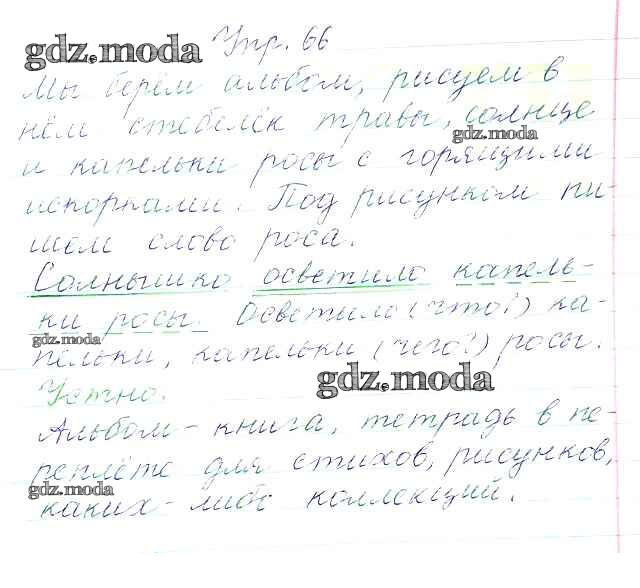 gdz.moda Упр. 66
Мы берём альбом, рисуем в
нём стебелёк травы, солнце
gdz.moda
и капельки росы с горящими
искорками. Под рисунком пи-
шем слово роса.
Солнышко осветило капель-
ки росы. Осветило (что?) ка-
gdz.moda
пельки, капельки (чего?) росы.
gdz.moda
Устно.
Альбом - книга, тетрадь в пе-
реплёте для стихов, рисунков,
gdz.moda
каких-либо коллекций.